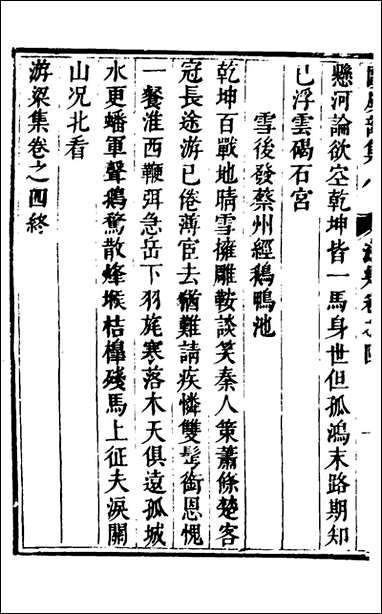 懸河論欲空乾坤皆一馬身世但孤鴻末路期知
已浮雲碣石宮
雪後發蔡州經鵝鴨池
乾坤百戰地晴雪擁雕鞍談笑秦人策蕭條楚客
冠長途游已倦薄宦去猶難請疾憐雙髩銜恩愧
一餐淮西鞭弭急岳下羽旄寒落木天俱遠孤城
水更蟠軍聲鵝驚散烽堠桔橰殘馬上征夫淚關
山况北看
游梁集卷之四終